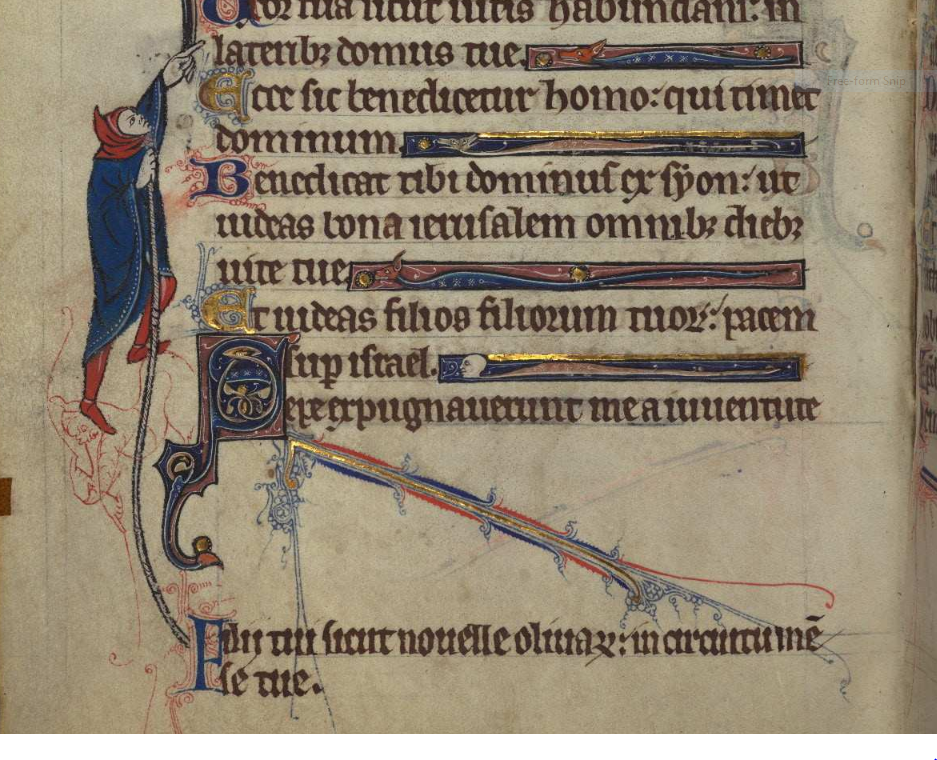 Uxor tua sicut uitis habundans: in
lateribꝫ domus tue.
Ecce sic benedicetur homo: qui timet
dominum.
Benedicat tibi dominus ex syon: ut
uideas bona ierusalem omnibꝫ diebꝫ
uite tue.
Et uideas filios filiorum tuoꝝ: pacem
sup israel.
Sepe expugnauerunt me a iuuentute
Filii tui sicut nouelle oliuaꝝ: in circuitu mē
se tue.
Free-form Snip